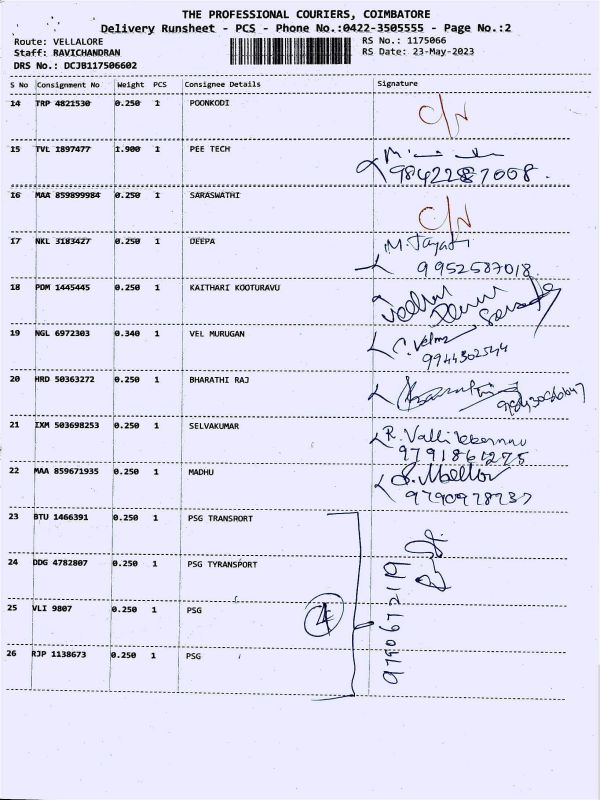 THE PROFESSIONAL COURIERS, COIMBATORE
Delivery Runsheet - PCS - Phone No.:0422-3505555 - Page No.:2
Route: VELLALORE RS No.: 1175066
Staff: RAVICHANDRAN RS Date: 23-May-2023
DRS No.: DCJB117506602
S No Consignment No Weight PCS Consignee Details Signature
14 TRP 4821530 0.250 1 POONKODI C/N
15 TVL 1897477 1.900 1 PEE TECH
9842287008.
16 MAA 859899984 0.250 1 SARASWATHI C/N
17 NKL 3183427 0.250 1 DEEPA M. Jayah
9952587018
18 PDM 1445445 0.250 1 KAITHARI KOOTURAVU
19 NGL 6972303 0.340 1 VEL MURUGAN C. Velm
9944302544
20 HRD 50363272 0.250 1 BHARATHI RAJ
21 IXM 503698253 0.250 1 SELVAKUMAR R. Valli
9791861275
22 MAA 859671935 0.250 1 MADHU
9790978737
23 BTU 1466391 0.250 1 PSG TRANSPORT
24 DDG 4782807 0.250 1 PSG TYRANSPORT
25 VLI 9807 0.250 1 PSG 4
26 RJP 1138673 0.250 1 PSG